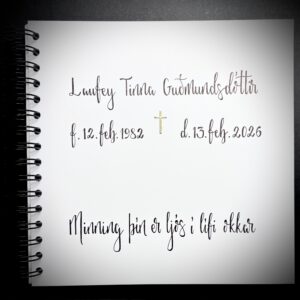 Laufey Tinna Guðmundsdóttir
f. 12. feb. 1982 d. 13. feb. 2026
Minning þín er ljós í lífi okkar